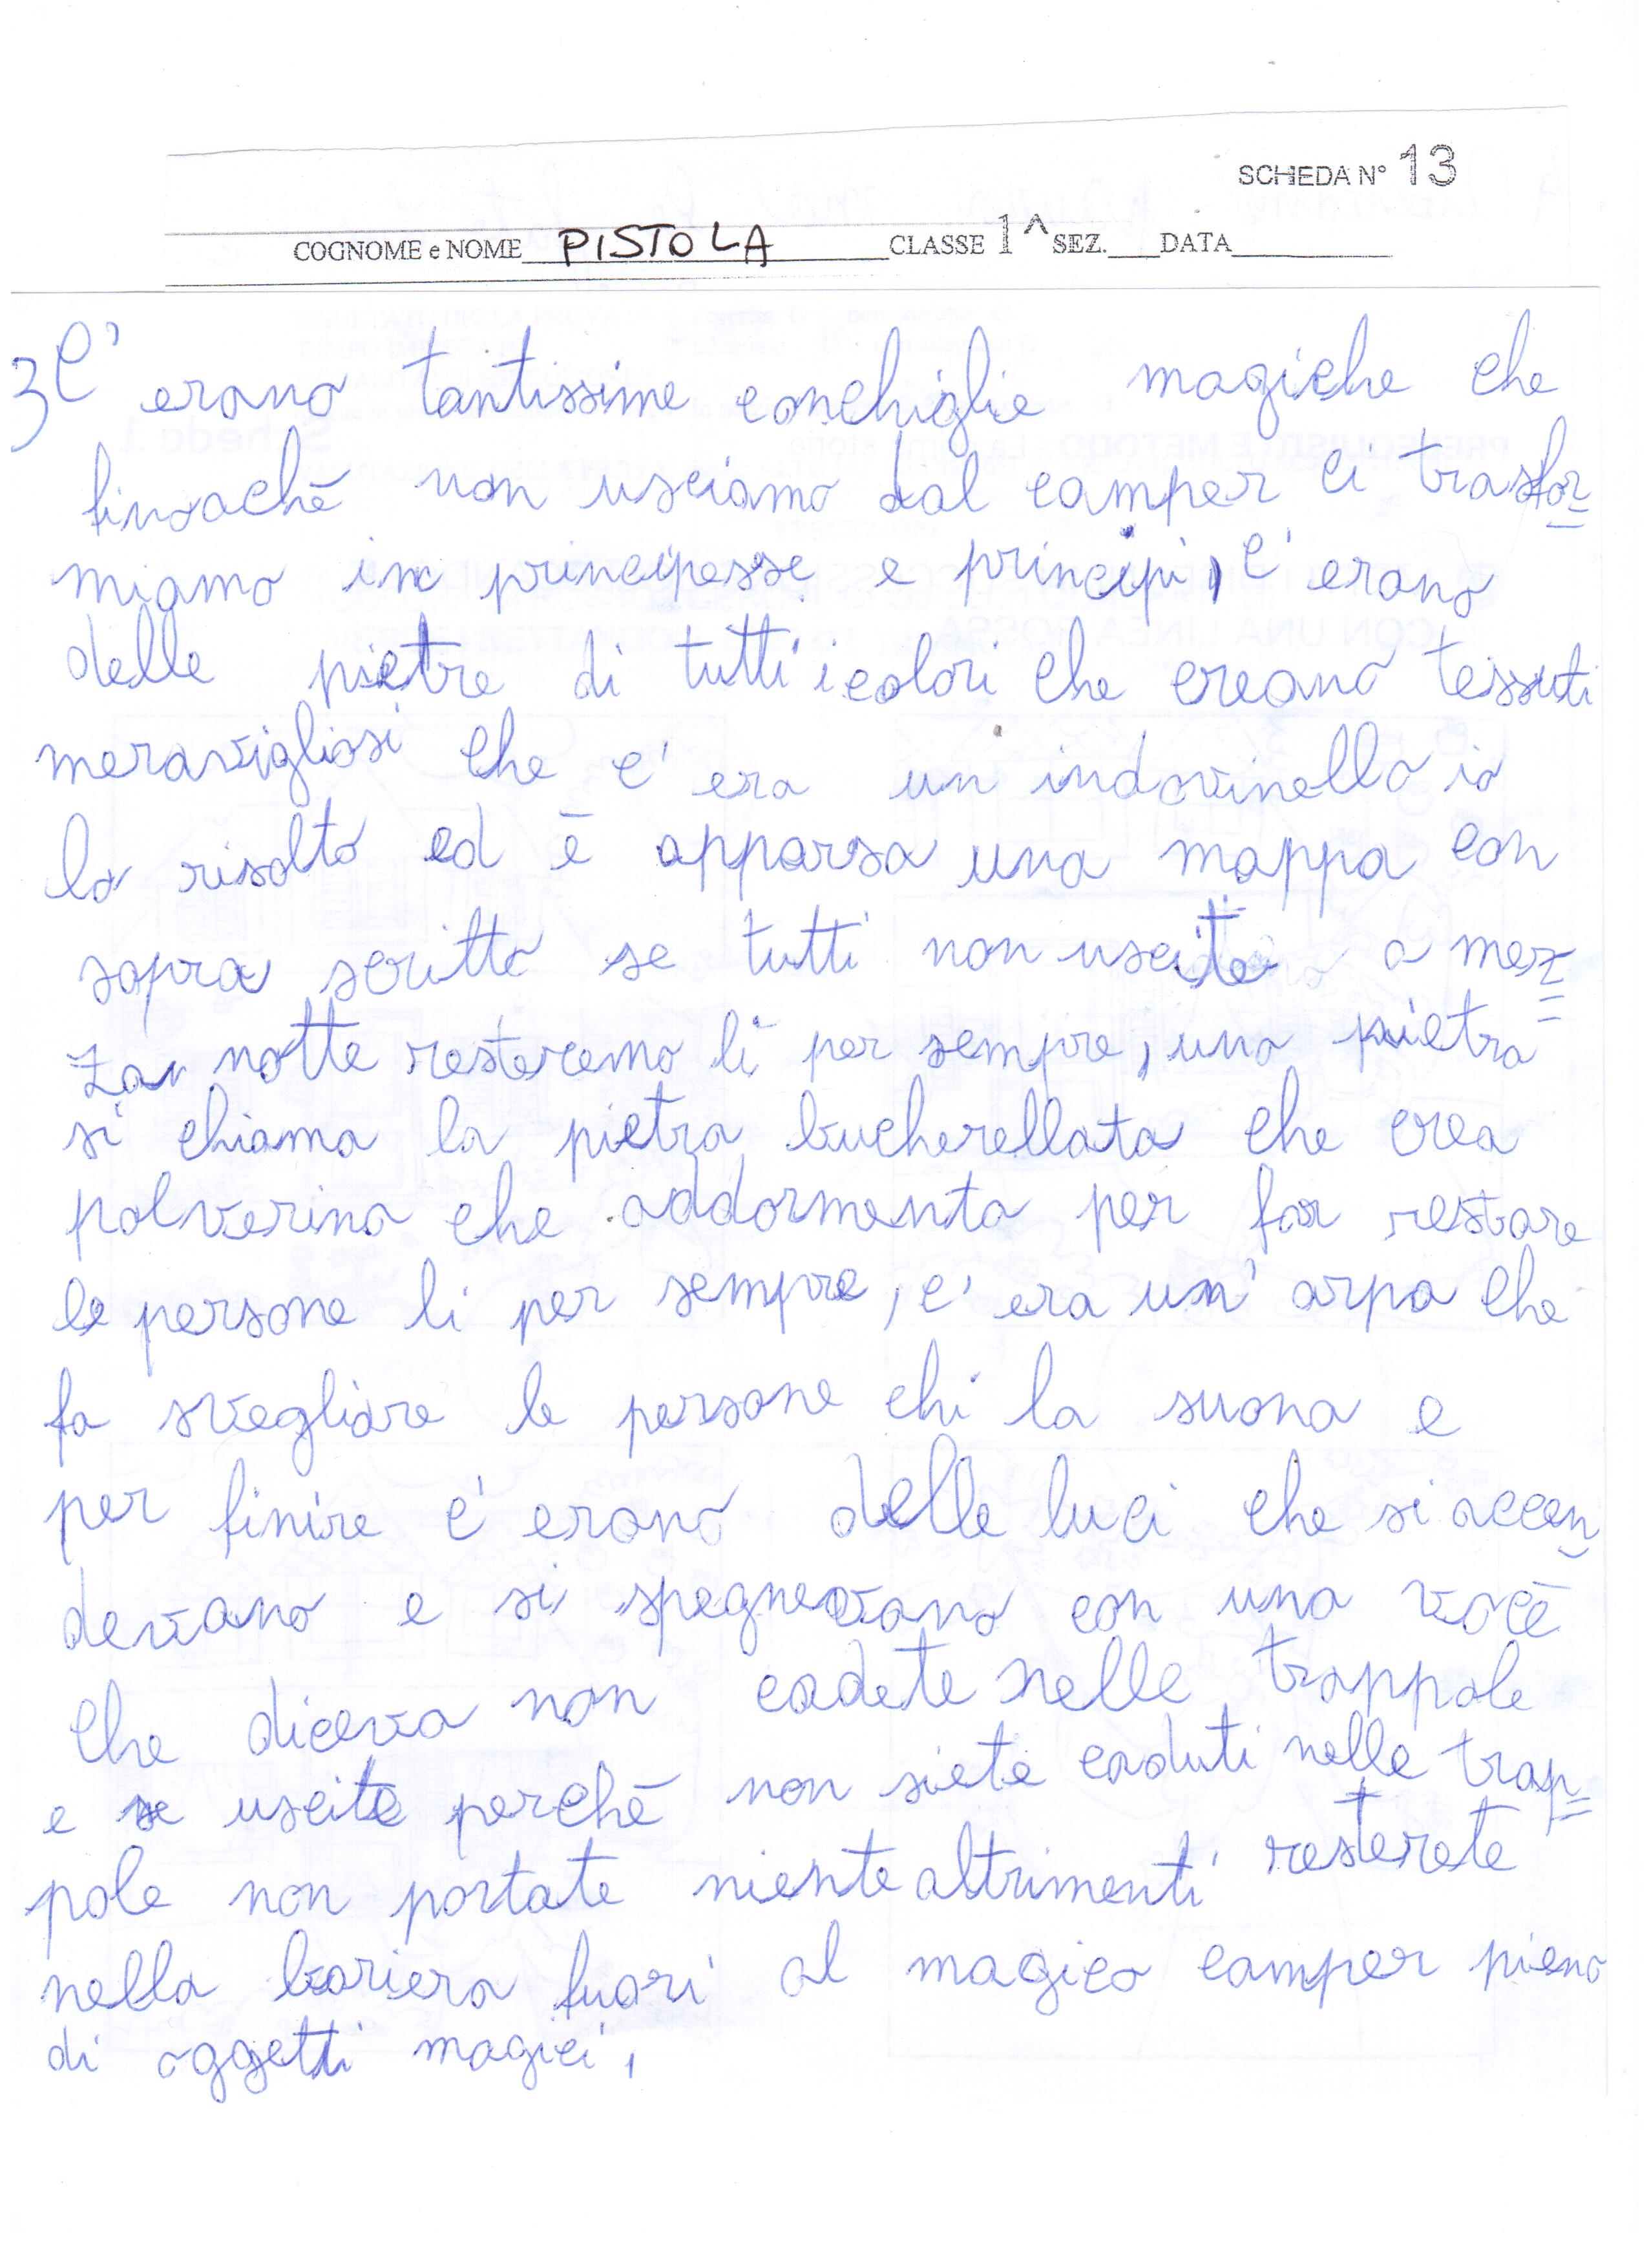 SCHEDA N° 13
COGNOME e NOME PISTOLA CLASSE 1^ SEZ.___DATA
3 C' erano tantissime conchiglie magiche che
finoaché non usciamo dal camper ci trasfor=
miamo in principesse e principi, c' erano
delle pietre di tutti i colori che creano tessuti
meravigliosi che c' era un indovinello io
lo risolto ed è apparsa una mappa con
sopra scritto se tutti non uscite a mez=
za notte resteremo lì per sempre, una pietra
si chiama la pietra bucherellata che crea
polverina che addormenta per far restare
le persone li per sempre, c' era un' arpa che
fa svegliare le persone chi la suona e
per finire c' erano delle luci che si accen
devano e si spegnevano con una voce
che diceva non cadete nelle trappole
e se uscite perché non siete caduti nelle trap=
pole non portate niente altrimenti resterete
nella bariera fuori al magico camper pieno
di oggetti magici,